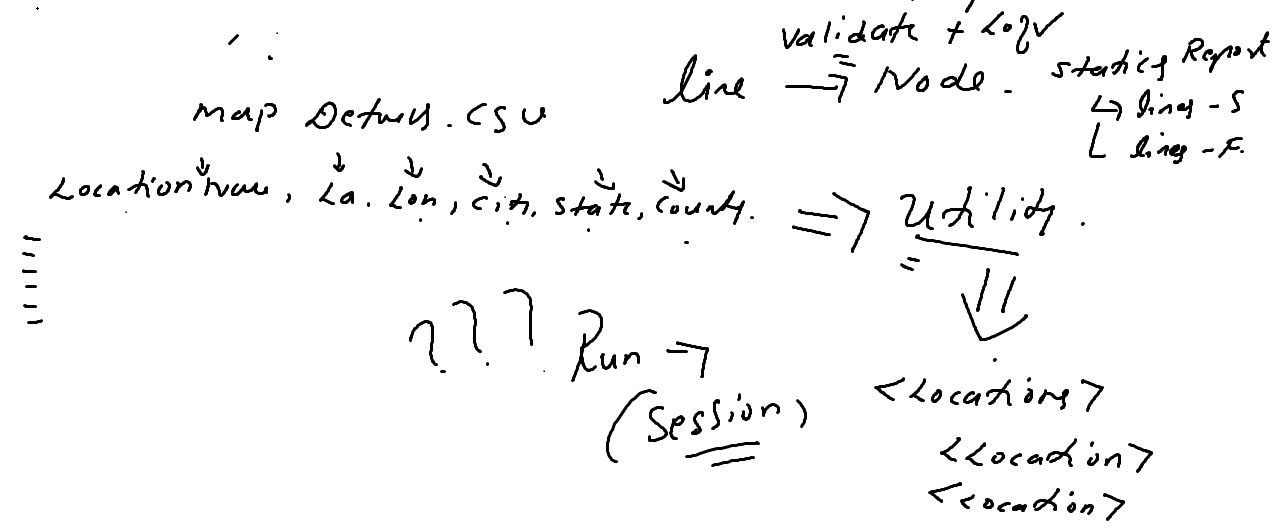 validate + Log
line → Node. statics Report
↳ lines - S
map Details.csv
└ lines - F.
Location Name, La. Lon, City, state, county. => Utility.
? ? ? Run →
(Session)
<Locations>
<Location>
<Location>